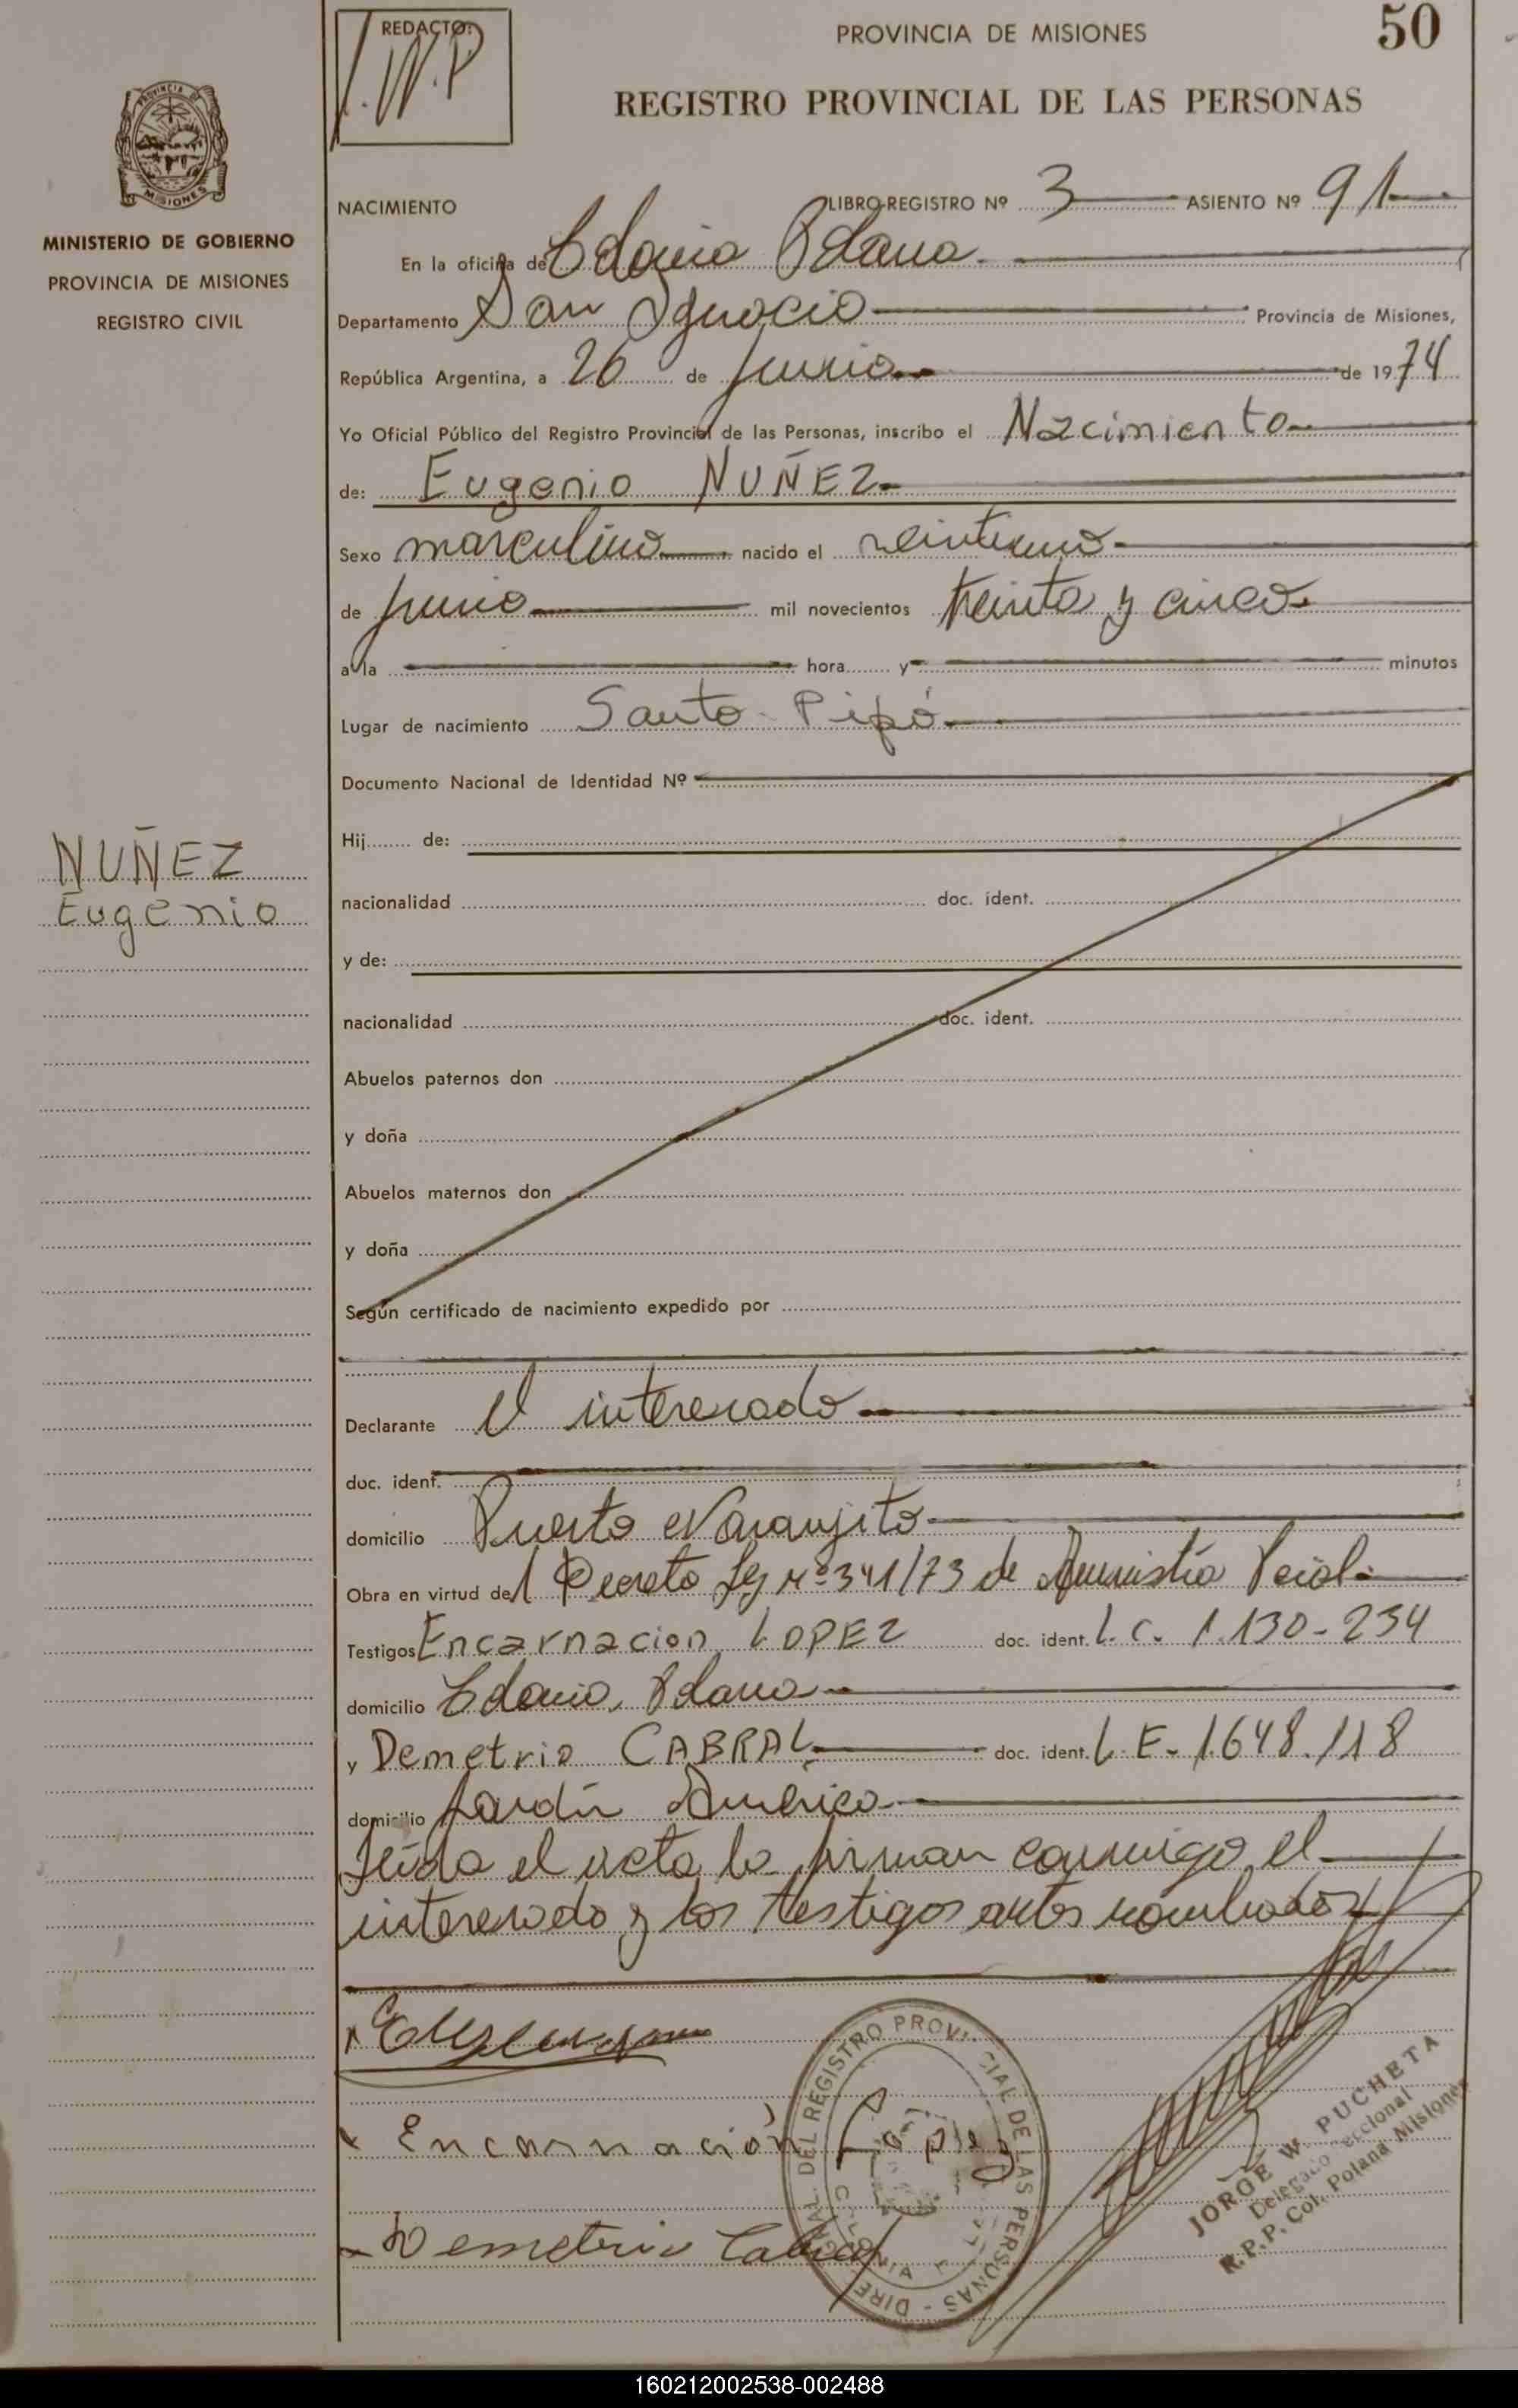 REDACTO:
J.W.P.
PROVINCIA DE MISIONES
50
REGISTRO PROVINCIAL DE LAS PERSONAS
PROVINCIA DE MISIONES
MINISTERIO DE GOBIERNO
PROVINCIA DE MISIONES
REGISTRO CIVIL
NUÑEZ
Eugenio
NACIMIENTO LIBRO-REGISTRO Nº 3 ASIENTO Nº 91
En la oficina de Colonia Polana
Departamento San Ignacio Provincia de Misiones,
República Argentina, a 26 de junio de 1974
Yo Oficial Público del Registro Provincial de las Personas, inscribo el Nacimiento
de: Eugenio NUÑEZ
Sexo masculino nacido el veintiuno
de junio mil novecientos treinta y cinco
a la hora y minutos
Lugar de nacimiento Santo Pipó
Documento Nacional de Identidad Nº
Hij de:
nacionalidad doc. ident.
y de:
nacionalidad doc. ident.
Abuelos paternos don
y doña
Abuelos maternos don
y doña
Según certificado de nacimiento expedido por
Declarante el interesado
doc. ident.
domicilio Puerto Naranjito
Obra en virtud del Decreto Ley Nº 341/73 de Amnistía Social
Testigos Encarnacion LOPEZ doc. ident. L.C. 1.130-234
domicilio Colonia Polana
y Demetrio CABRAL doc. ident. L.E. 1.648.118
domicilio Jardín América
Leída el acta la firman conmigo el
interesado y los testigos antes nombrados
Encarnación Lopez
Demetrio Cabral
DEL REGISTRO PROVINCIAL DE LAS PERSONAS - DIRE
COLONIA
JORGE W. PUCHETA
Delegado Seccional
R.P.P. Col. Polana Misiones
160212002538-002488